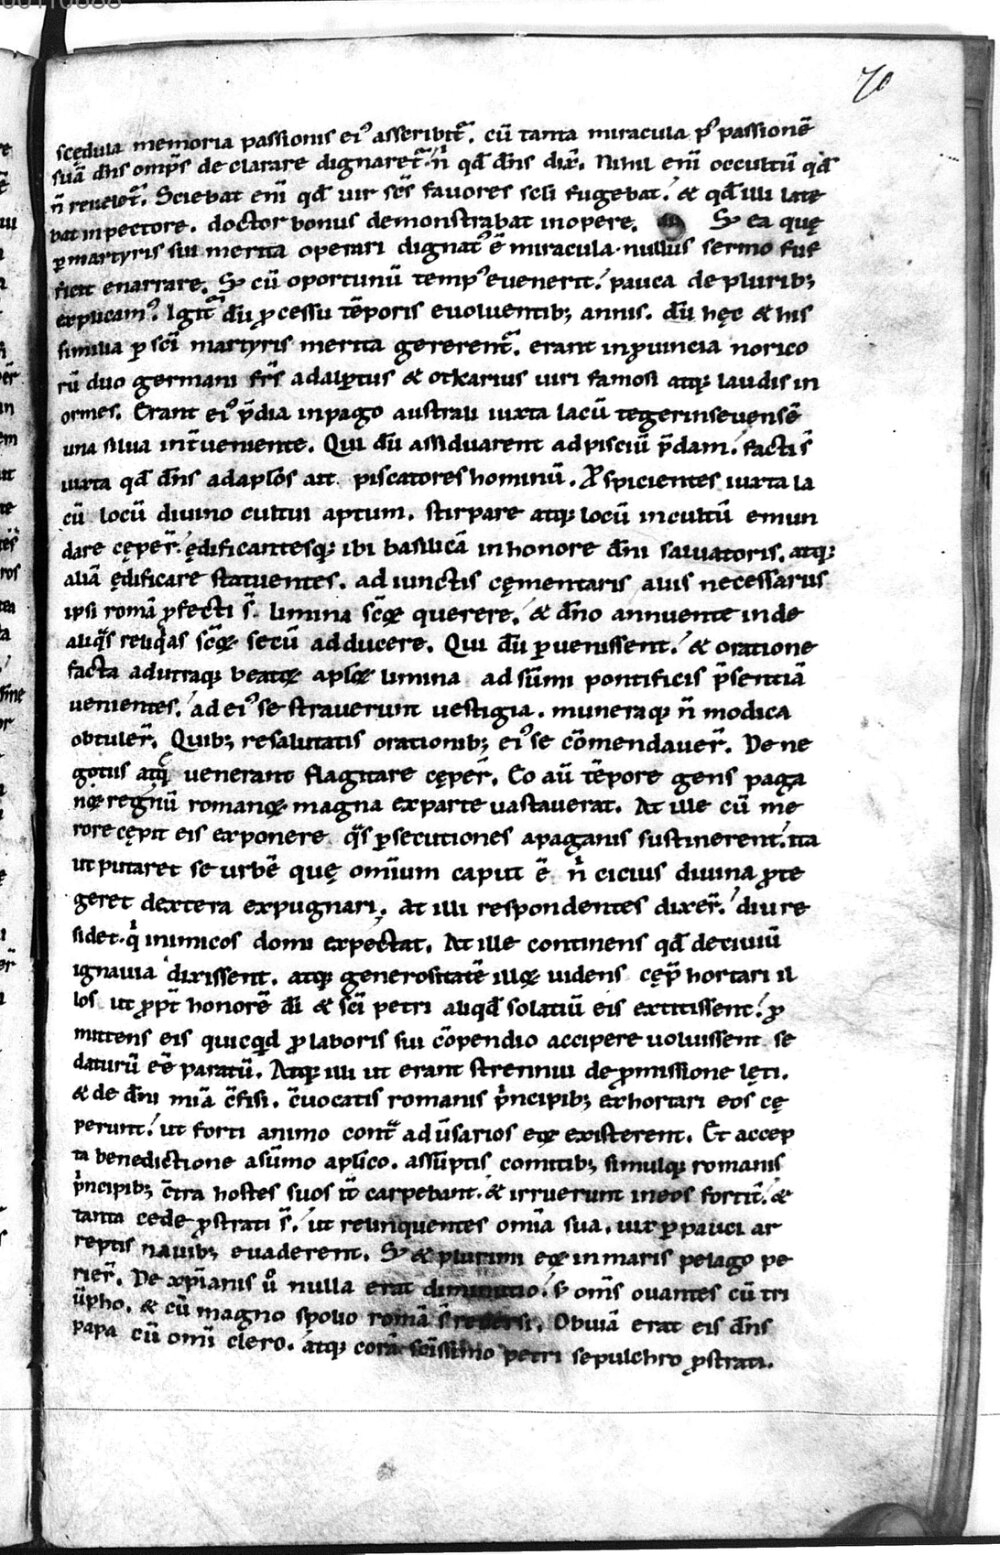 70
scędula memoria passionis ei᾿ asseribit᷑. cū tanta miracula p᾿ passionē
suā dn̄s omp̄s de clarare dignaret᷑. n̄ qd̄ dn̄s dix̄. Nihil eni̅ occultū qd̄
n̄ revelet᷑. Sciebat eni̅ qd̄ vir sc̄s favores scl̄i fugebat. & qd̄ illi late
bat in pectore. doctor bonus demonstrabat in opere. S; ea quę
p̱ martyris sui merita operari dignat᾿ ē miracula. nullus sermo suf
ficit enarrare. S; cū oportunū temp᾿ evenerit. pauca de plurib;
explicam᾿. Igit᷑ dū p̱cessu tēporis evoluentib; annis. dū hęc & his
similia p̱ sc̄i martyris merita gererent᷑. erant in p̱vincia norico
rū duo germani fr̄s adalp̱tus & otkarius viri famosi atq; laudis in
ormes. Erant ei᾿ p̄dia in pago australi iuxta lacū tegerinsevensē
una silva int̄veniente. Qui dū assiduarent ad pisciū p̄dam. facti s̄
iuxta qd̄ dn̄s ad apl̄os ait piscatores hominū. P̱spicientes iuxta la
cū locū divino cultui aptum. stirpare atq; locū incultū emun
dare cęper̄. ędificantesq; ibi basilicā in honore dn̄i salvatoris. atq;
aliā ędificare statuentes. ad iunctis cęmentariis aliis necessariis
ipsi romā p̱fecti s̄. limina sc̄oꝝ querere. & dn̄o annuente inde
aliq̄s reliq̄as sc̄oꝝ secū adducere. Qui dū p̱venissent. & oratione
facta ad utraq; beatoꝝ apl̄oꝝ limina ad sūmi pontificis p̄sentiā
venientes. ad ei᾿ se straverunt vestigia. muneraq; n̄ modica
obtuler̄. Quib; resalutatis orationib; ei᾿ se cōmendaver̄. De ne
gotiis atq; venerant flagitare cęper̄. Eo aū tēpore gens paga
noꝝ regnū romanoꝝ magna ex parte vastaverat. At ille cū me
rore cępit eis exponere q̄s p̱secutiones a paganis sustinerent. ita
ut putaret se urbē quę omniū caput ē n̄ cicius divina p̱te
geret dextera expugnari. At illi respondentes dixer̄. diu re
sidet. q̄ inimicos domi expectat. At ille continens qd̄ de civiū
ignavia dixissent. atq; generositatē illoꝝ videns cęp̄ hortari il
los ut p̱pt̄ honorē dī & sc̄i petri aliqd̄ solatiū eis extitissent. p̱
mittens eis quicq̄d p̱ laboris sui cōpendio accipere voluissent se
daturū eē paratū. Atq; illi ut erant strennui de p̱missione lęti.
& de dn̄i mīa c̄fisi. c̄vocatis romanis p̄ncipib; exhortari eos cę
perunt. ut forti animo cont̄ adūsarios eoꝝ existerent. Et accep
ta benedictione a sūmo aplīco. assūptis comitib; simulq; romanis
p̄ncipib; c̄tra hostes suos it̄ carpebant. & irruerunt in eos fortit̄. &
tanta cede p̱strati s̄. ut relinquentes omīa sua. vix p̱pauci ar
reptis navib; evaderent. S; & plurimi eoꝝ in maris pelago pe
rier̄. De xp̄ianis ů nulla erat diminutio. s; oms̄ ovantes cū tri
ūpho. & cū magno spolio romā s̄ reversi. Obviā erat eis dn̄s
papa cū omī clero. atq; corā sc̄issimo petri sepulchro p̱strati.